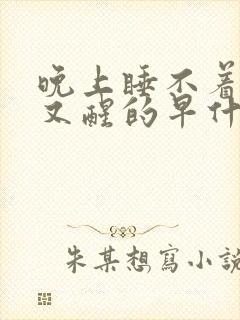 晚上睡不着
又醒的早什
朱某想寫小說